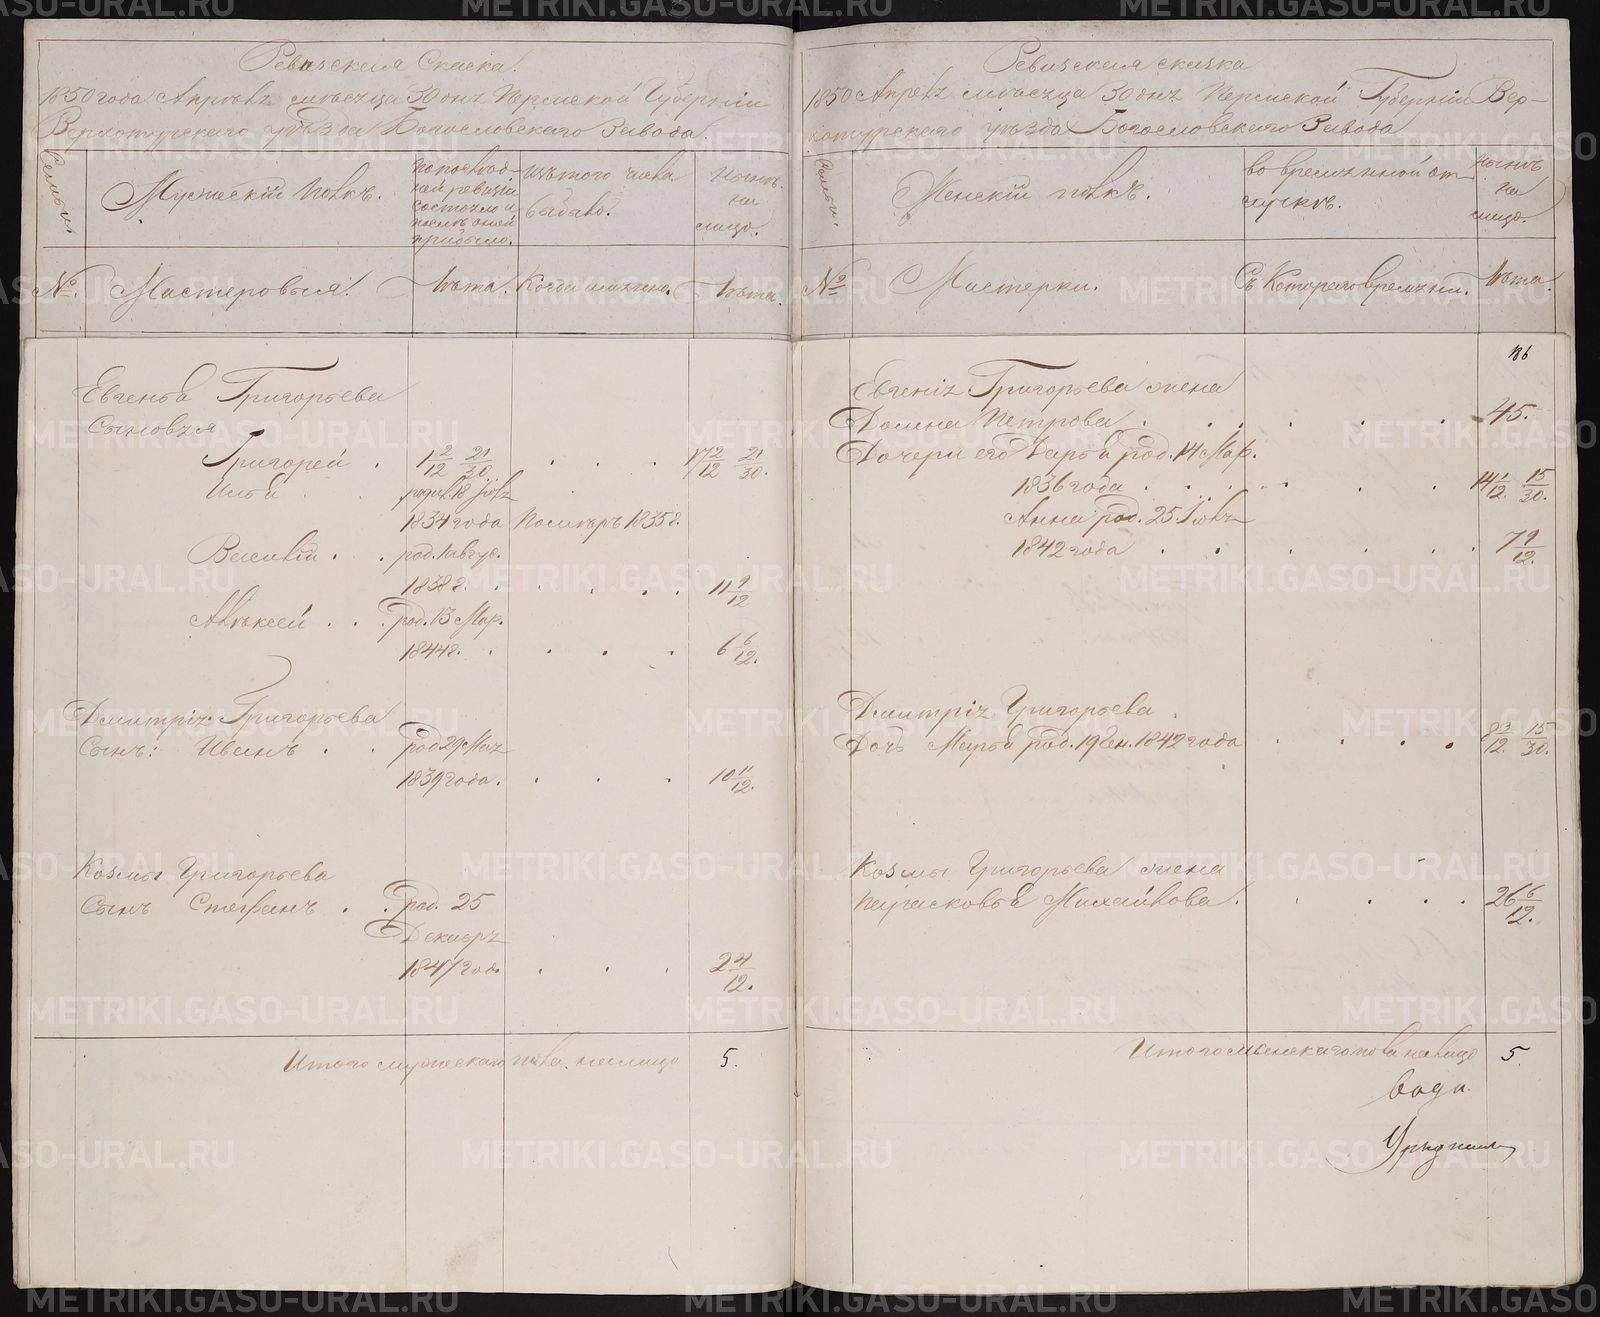 Ревизская Сказка.
1850 года Апреля месяца 30 дня Пермской Губернии
Верхотурского уезда Богословского Завода.
Семьи.
Мужеский полъ.
по последней ревизіи состояло и после оной прибыло.
изъ того числа выбыло.
Ныне на лицо.
№.
Мастеровыя.
Лѣта.
Когда именно.
Лѣта.
Евгенья Григорьева
Сыновья
Григорей . 1 2/12 21/30 . . . 17 2/12 21/30.
Илья . . родил. 18 Іюля
1834 года Померъ 1835 г.
Василій . . род. 1 авгус.
1838 г. . . . . . 11 9/12
Алѣксей . . род. 13 Мар.
1844 г. . . . . 6 6/12.
Дмитрія Григорьева
Сынъ: Иванъ . . род 29 Мая
1839 года. . . . 10 11/12.
Козмы Григорьева
Сынъ Стефанъ . . род. 25
Декабря
1847 год . . . 2 4/12.
Итого мужескаго пола на лицо 5.
Ревизская сказка
1850 Апреля месяца 30 дня Пермской Губерніи Вер-
хотурскаго уѣзда Богословскаго Завода
Семьи.
Женскій полъ.
во временной отлучкѣ.
Нынѣ на лицо.
№
Мастерки.
Съ Котораго времѣни.
Лѣта.
186
Евгенія Григорьева жена
Домна Петрова . . . . . . 45.
Дочери его Дарья род. 14 Мар.
1836 года . . . . . . 14 1/12. 15/30.
Анна род. 25 Іюля
1842 года . . . . . . 7 9/12.
Дмитрія Григорьева
Дочь Марья род. 19 Ген. 1842 года . . . . 8 3/12. 15/30.
Козмы Григорьева жена
Парасковья Михайлова. . . . . 26 6/12.
Итого женскаго пола на лицо 5.